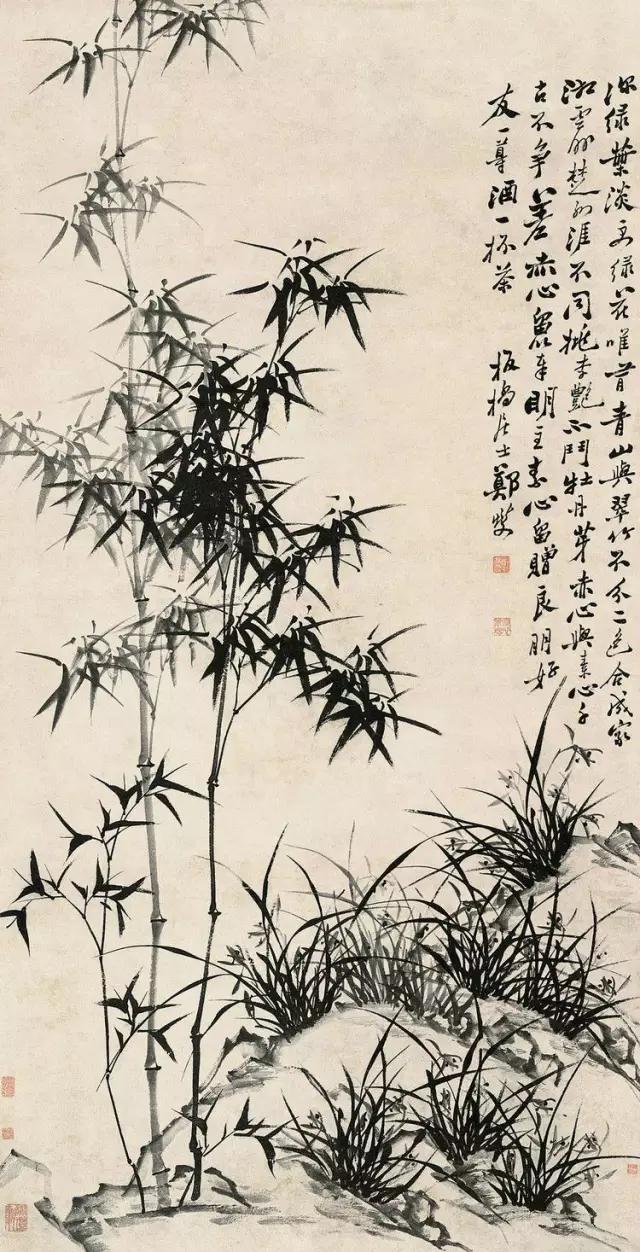 深绿葉淡绿花唯青山與翠竹不分二色合成家
湘雲楚水涯不同桃李艷不鬥牡丹芽赤心與素心千
古不争差赤心留奉明主素心留贈良朋好
友一尊酒一杯茶 板橋居士鄭燮